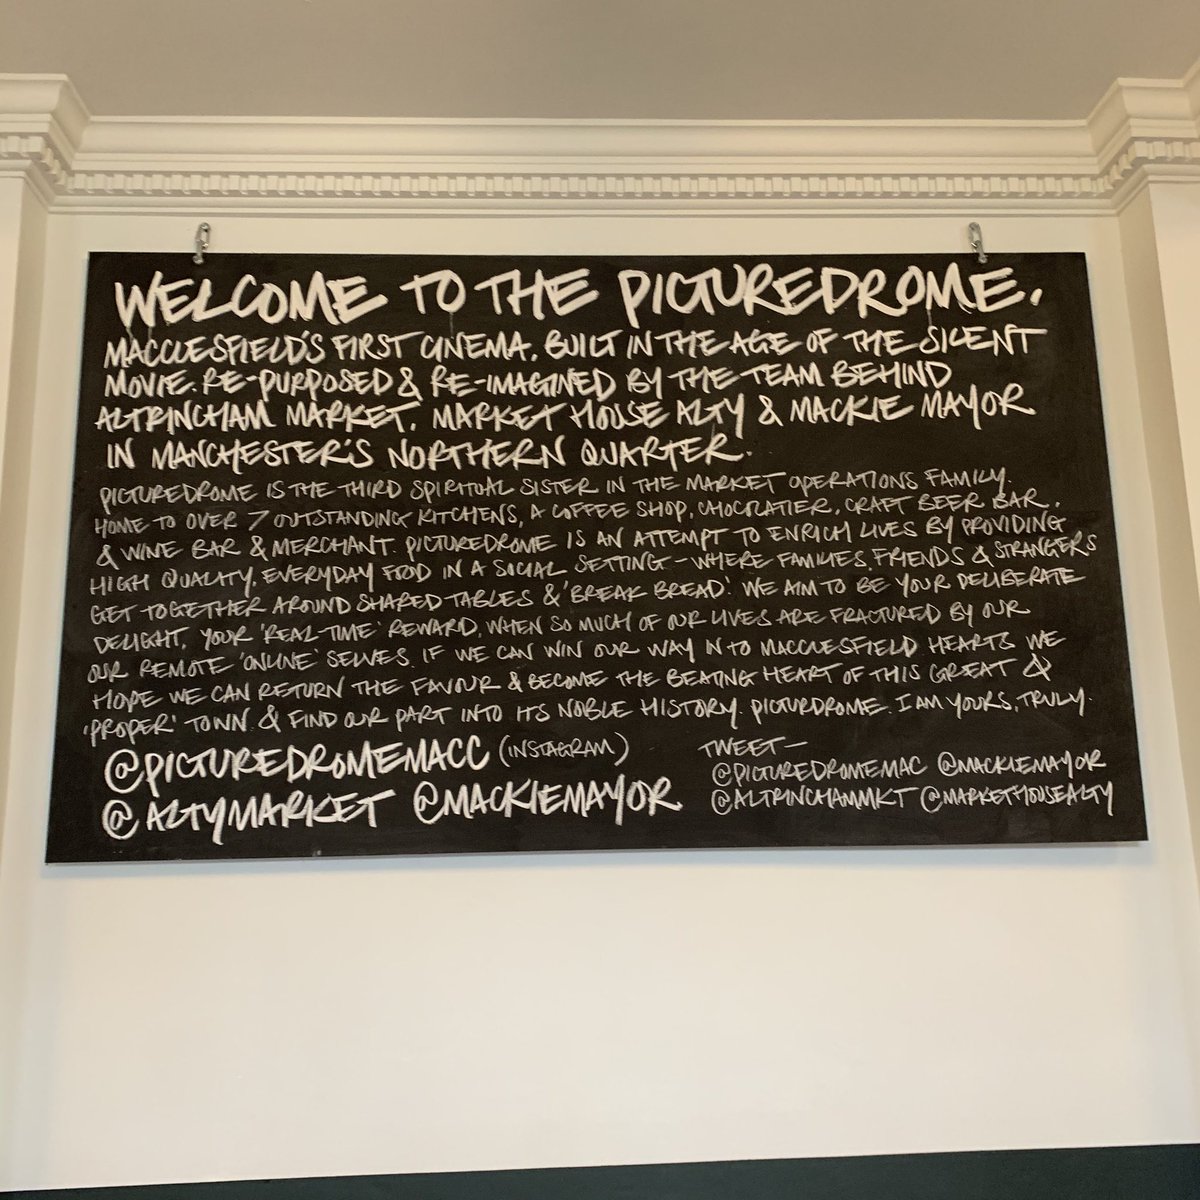 WELCOME TO THE PICTUREDROME.
MACCLESFIELD'S FIRST CINEMA. BUILT IN THE AGE OF THE SILENT
MOVIE. RE-PURPOSED & RE-IMAGINED BY THE TEAM BEHIND
ALTRINCHAM MARKET. MARKET HOUSE ALTY & MACKIE MAYOR
IN MANCHESTER'S NORTHERN QUARTER.
PICTUREDROME IS THE THIRD SPIRITUAL SISTER IN THE MARKET OPERATIONS FAMILY.
HOME TO OVER 7 OUTSTANDING KITCHENS, A COFFEE SHOP, CHOCOLATIER, CRAFT BEER BAR,
& WINE BAR & MERCHANT. PICTUREDROME IS AN ATTEMPT TO ENRICH LIVES BY PROVIDING
HIGH QUALITY, EVERYDAY FOOD IN A SOCIAL SETTING - WHERE FAMILIES, FRIENDS & STRANGERS
GET TOGETHER AROUND SHARED TABLES & 'BREAK BREAD'. WE AIM TO BE YOUR DELIBERATE
DELIGHT, YOUR 'REAL-TIME' REWARD, WHEN SO MUCH OF OUR LIVES ARE FRACTURED BY OUR
OUR REMOTE 'ONLINE' SELVES. IF WE CAN WIN OUR WAY IN TO MACCLESFIELD HEARTS WE
HOPE WE CAN RETURN THE FAVOUR & BECOME THE BEATING HEART OF THIS GREAT &
'PROPER' TOWN. & FIND OUR PART INTO ITS NOBLE HISTORY. PICTURDROME. I AM YOURS, TRULY.
@PICTUREDROMEMACC (INSTAGRAM)
@ALTYMARKET @MACKIEMAYOR
TWEET—
@PICTUREDROMEMAC @MACKIEMAYOR
@ALTRINCHAMMKT @MARKETHOUSEALTY